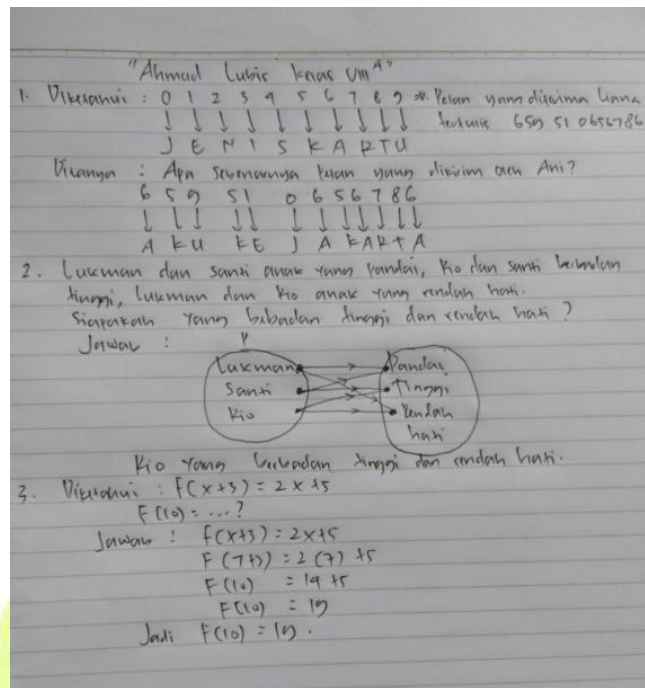 "Ahmad Lubis kelas VIII A"
1. Diketahui : 0 1 2 3 4 5 6 7 8 9 Pesan yang diterima Liana
tertulis 659 51 0656786
J E N I S K A R T U
Ditanya : Apa sebenarnya pesan yang dikirim oleh Ani?
6 5 9 51 0 6 5 6 7 8 6
A K U K E J A K A R T A
2. Lukman dan Santi anak yang pandai, Kio dan Santi berbadan
tinggi, Lukman dan Kio anak yang rendah hati.
Siapakah yang bebadan tinggi dan rendah hati ?
Jawab :
Lukman Pandai
Santi Tinggi
Kio Rendah
hati
Kio yang berbadan tinggi dan rendah hati.
3. Diketahui : f(x+3) = 2x+5
F(10) = ... ?
Jawab : f(x+3) = 2x+5
F(7+3) = 2(7) +5
F(10) = 14 +5
F(10) = 19
Jadi F(10) = 19.